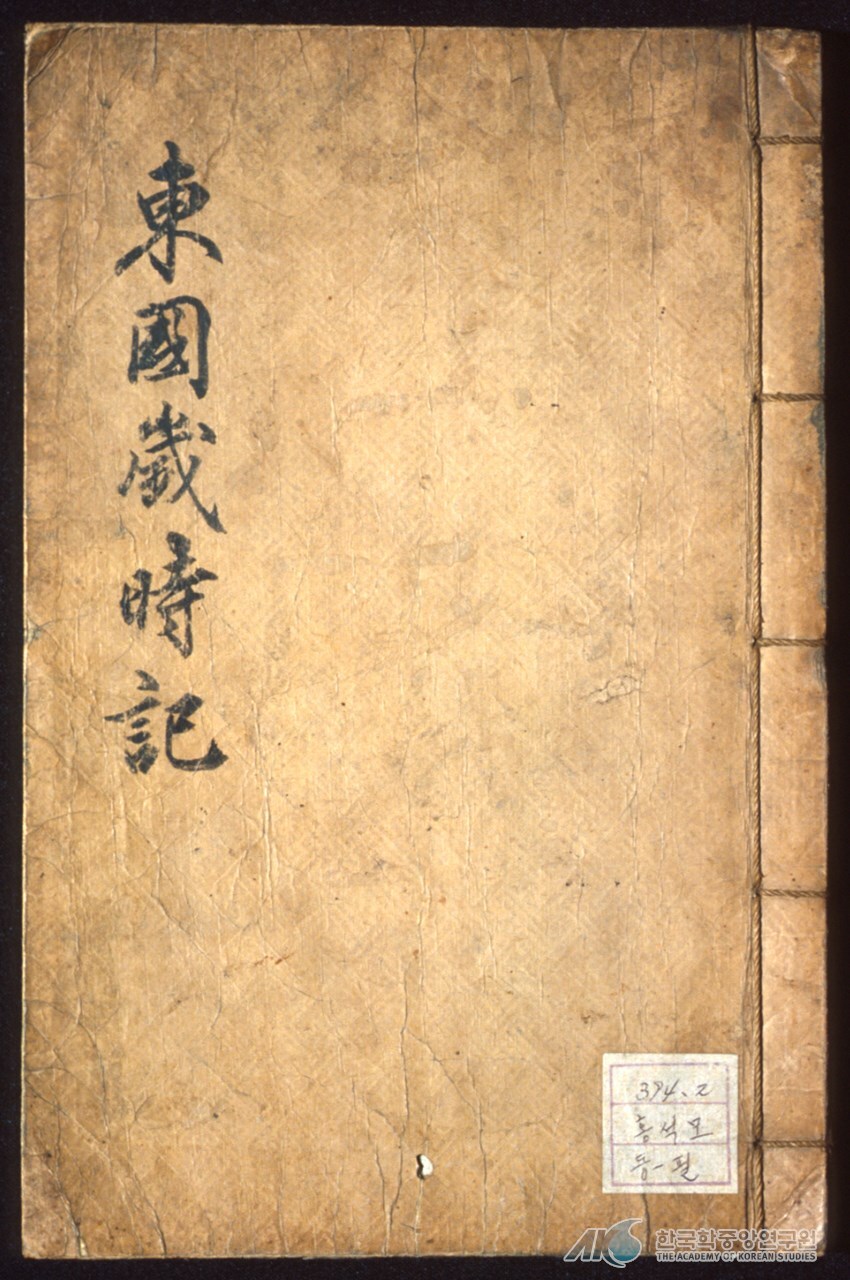 東國歲時記
394.2
홍석모
동-필
AKS 한국학중앙연구원
THE ACADEMY OF KOREAN STUDIES